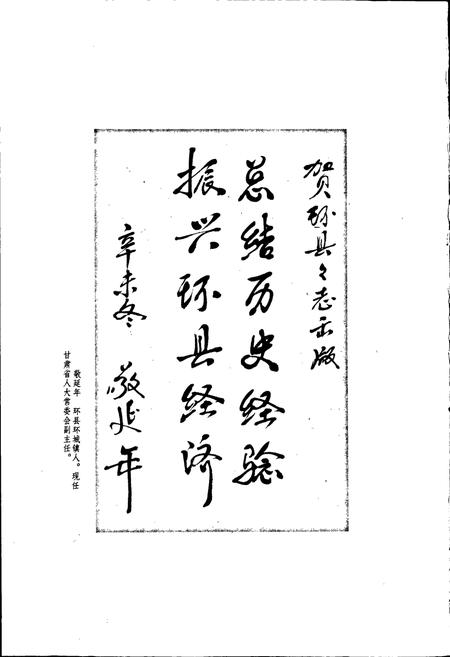 贺环县々志出版
总结历史经验
振兴环县经济
辛未冬 敬延年
敬延年 环县环城镇人。现任
甘肃省人大常委会副主任。